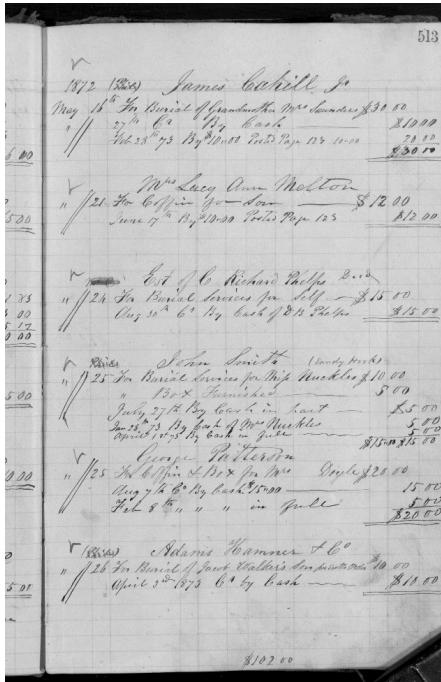 513
1872 (Paid) James Cahill Jr
May 16th For Burial of Grandmother Mrs Saunders $30 00
" 27th Cr By Cash $10 00
Feb 28th 73 By $10.00 Posted Page 123 10.00 20 00
$30 00
Mrs Lucy Ann Melton
" 21 For Coffin for Son $12 00
June 17th By $10.00 Posted Page 123 $12 00
Est of C. Richard Phelps Decd
" 24 For Burial Services for Self $15 00
Aug 30th Cr By Cash of D B Phelps $15 00
(Paid) John Smith (Sandy Hook)
" 25 For Burial Services for Miss Nuckles $10 00
" Box Furnished 5 00
July 27th By Cash in part $5 00
Jan 28th 73 By Cash of Mrs Nuckles 5 00
April 1st 75 By Cash in full 5 00
$15.00 $15 00
George Patterson
" 25 For Coffin & Box for Mrs Doyle $20 00
Aug 7th Cr By Cash $15.00 15 00
Feb 8th " " " in full 5 00
$20 00
(Paid) Adams Hamner & Co
" 26 For Burial of Jacob Walker's Son $10 00
April 3rd 1873 Cr by Cash $10 00
$102 00
6 00
5 00
1 83
3 00
5 17
0 00
5 00
0 00
5 00